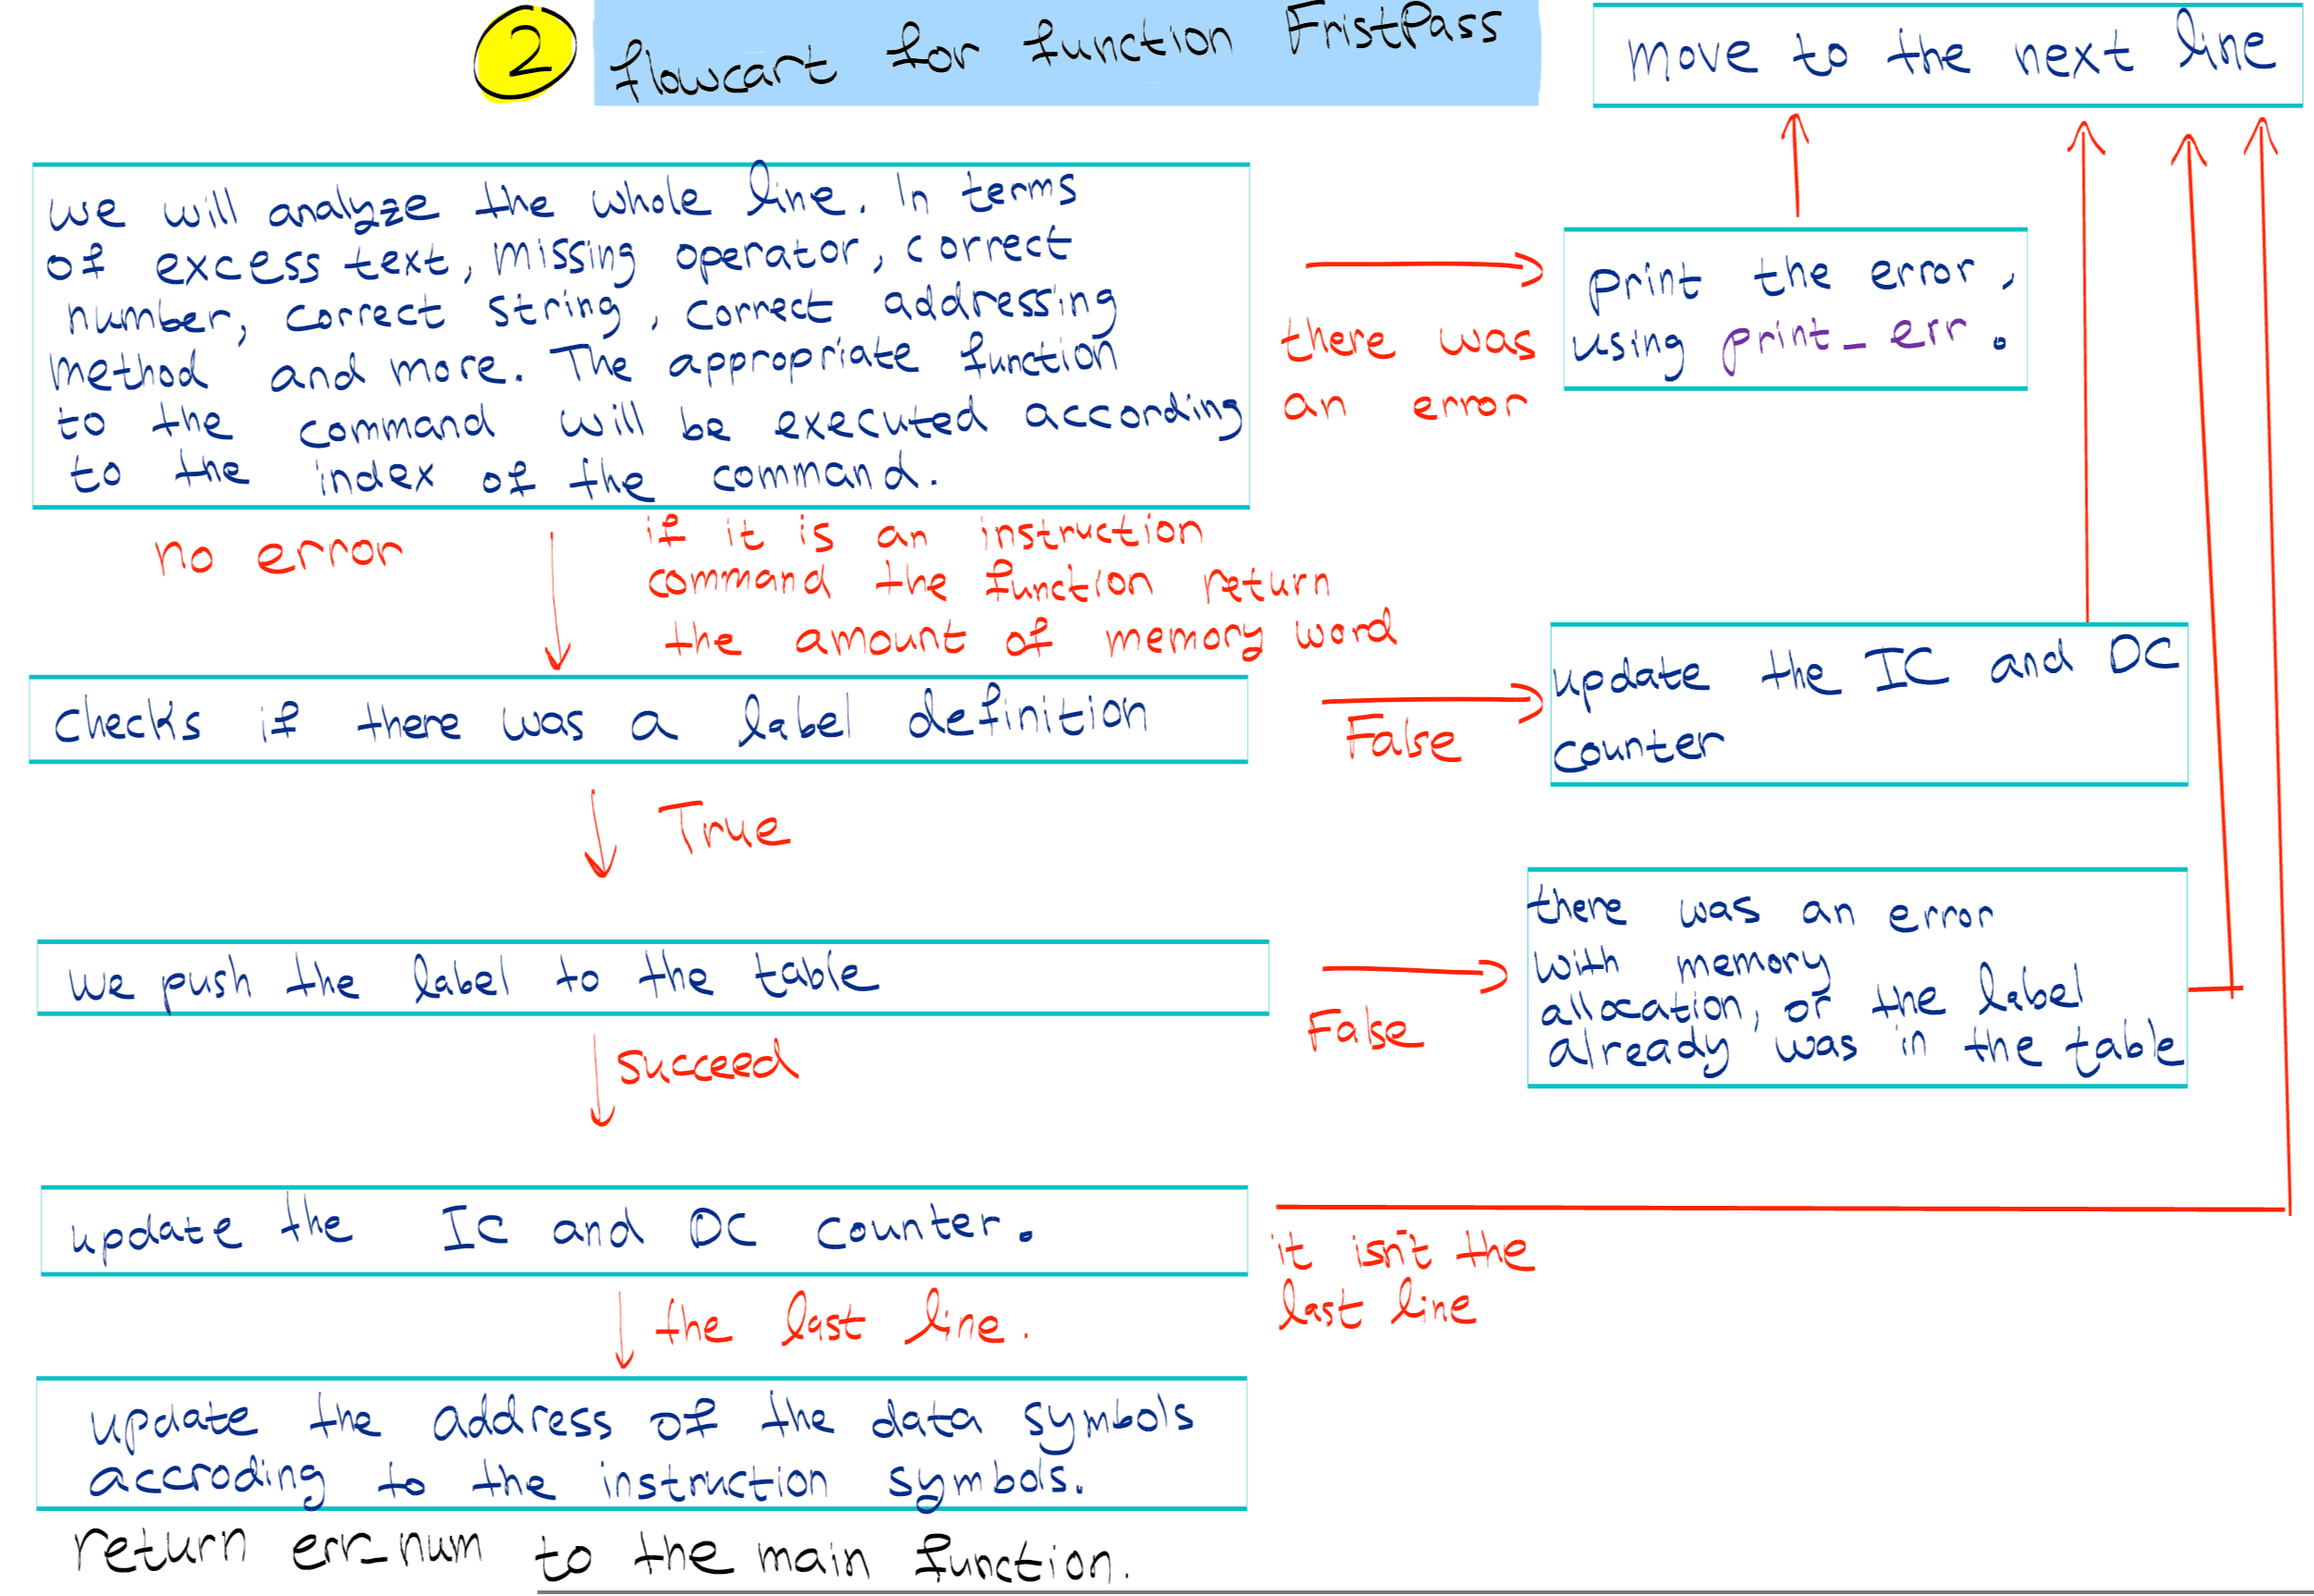 2 flowcart for function FristPass
move to the next line
we will analyze the whole line. In terms
of excess text, missing operator, correct
number, correct string, correct addressing
method and more. The appropriate function
to the command will be executed according
to the index of the command.
there was
an error
print the error,
using print_err.
no error
if it is an instruction
command the function return
the amount of memory word
checks if there was a label definition
False
update the IC and DC
counter
True
we push the label to the table
False
there was an error
with memory
allocation, or the label
already was in the table
succeed
update the IC and DC counter.
it isn't the
last line
the last line.
update the address of the data symbols
accroding to the instruction symbols.
return err_num to the main function.